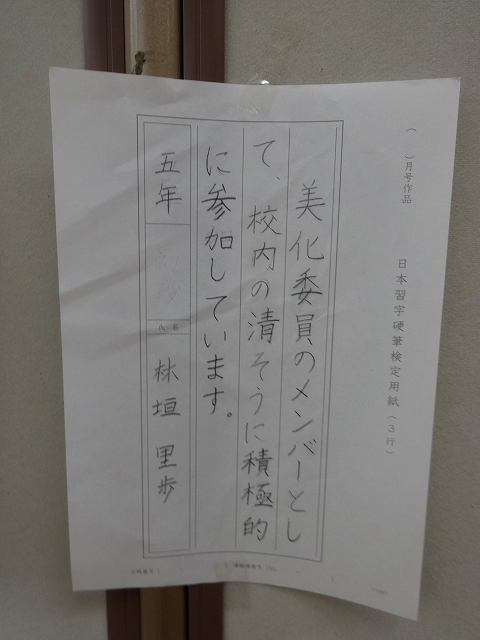 ( )月号作品
日本習字硬筆検定用紙(3行)
美化委員のメンバーとし
て、校内の清そうに積極的
に参加しています。
五年
氏名
林垣里歩